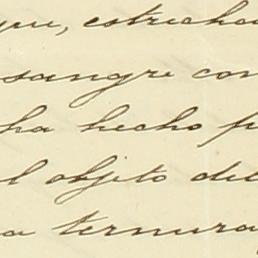 que, estrecha
sangre con
ha hecho p
l objeto del
a ternura